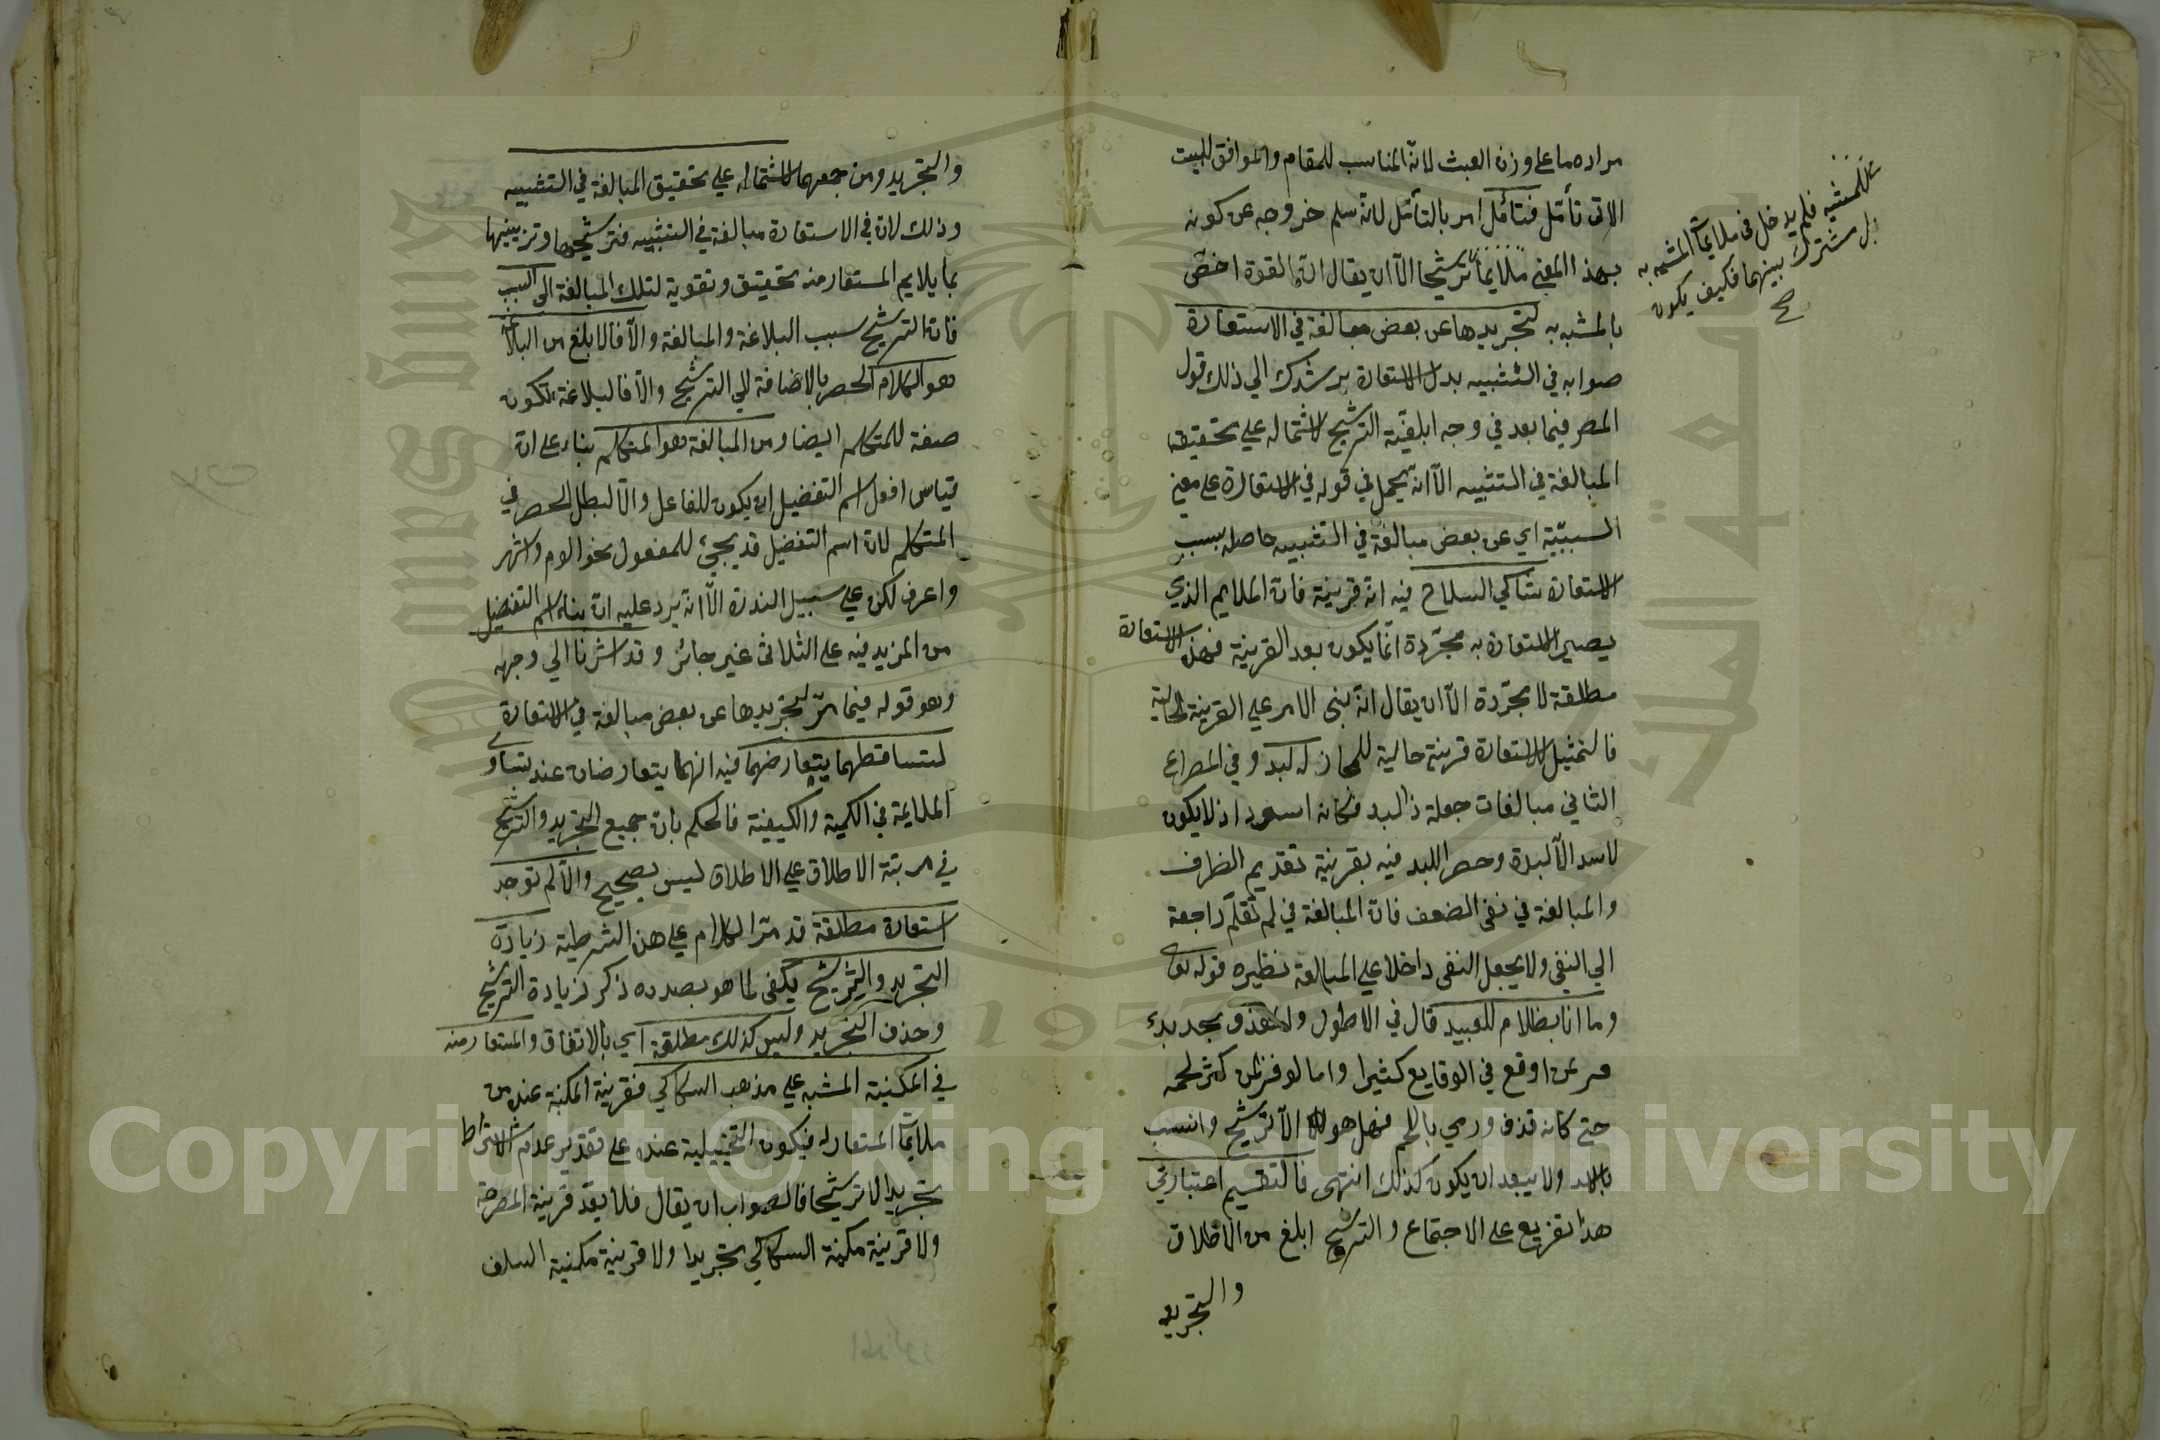 مراده ما على وزن العبث لانه المناسب للمقام والموافق للبيت
الاتى تأمل فتأمل امر بالتأمل لانه سلم خروجه عن كونه
بهذا المعنى ملايما ترشيحا الا ان يقال ان القوة اخص
بالمشبه به لتجريدها عن بعض مبالغة في الاستعارة
صوابه في التشبيه بدل الاستعارة يرشدك الي ذلك قول
المصر فيما بعد في وجه ابلغية الترشيح لاشتماله علي تحقيق
المبالغة في التشبيه الا انه يحمل في قوله في الاستعارة على معنى
السببية اي عن بعض مبالغة في التشبيه حاصله بسبب
الاستعارة شاكي السلاح فيه انه قرينة فان الملايم الذي
يصير الاستعارة به مجردة انما يكون بعد القرينة فهذه الاستعارة
مطلقة لا مجردة الا ان يقال انه بنى الامر علي القرينة الحالية
فالتمثيل للاستعارة قرينة حالية للمجاز له لبد وفي المصراع
الثاني مبالغات جعله ذا لبد فكانه اسود اذ لا يكون
لاسد الا لبدة وحصر اللبد فيه بقرينة تقديم الظرف
والمبالغة في نفى الضعف فان المبالغة في لم تقلم راجعة
الي النفي ولا يجعل النفى داخلا علي المبالغة نظيره قوله تعالى
وما انا بظلام للعبيد قال في الاطول
من اوقع في الوقايع كثيرا واما لو فر بمن كثر لحمه
حتى كانه قذف ورمي باللحم فهل هو الا ترشيح وانسب
بالاسد ولا يبعد ان يكون كذلك انتهى فالتقسيم اعتباري
هذا تفريع على الاجتماع والترشيح ابلغ من الاطلاق
والتجريد
للمشبه فلم يدخل فى ملايمات المشبه به
بل مشترك بينهما فكيف يكون
صح
والتجريد ومن جمعهما لاشتماله علي تحقيق المبالغة في التشبيه
وذلك لان في الاستعارة مبالغة في التشبيه فترشيحها وتزيينها
بما يلايم المستعار منه تحقيق وتقوية لتلك المبالغة الي السبب
فان الترشيح سبب البلاغة والمبالغة والا فالابلغ من البلاغة
هو الكلام الحصر بالاضافة الي الترشيح والا فالبلاغة تكون
صفة للمتكلم ايضا ومن المبالغة هو المتكلم بناء على ان
قياس افعل اسم التفضيل ان يكون للفاعل والا لبطل الحصر في
المتكلم لان اسم التفضيل قد يجئ للمفعول نحو الوم واشهر
واعرف لكن علي سبيل الندرة الا انه يرد عليه ان بناء اسم التفضيل
من المزيد فيه على الثلاثى غير جائز وقد اشرنا الي وجهه
وهو قوله فيما مر لتجريدها عن بعض مبالغة في الاستعارة
لتساقطهما بتعارضهما فيه انهما يتعارضان عند تساوي
الملايمة في الكمية والكيفية فالحكم بان جميع التجريد والترشيح
في مرتبة الاطلاق علي الاطلاق ليس بصحيح والا لم توجد
استعارة مطلقة قد مر الكلام علي هذه الشرطية زيادة
التجريد والترشيح يكفى لما هو بصدده ذكر زيادة الترشيح
وحذف التجريد وليس كذلك مطلقة اي بالاتفاق والمستعار منه
في المكنية المشبه علي مذهب السكاكي فقرينة المكنية عنده من
ملايمات المستعار له فيكون التخييلية عنده على تقدير عدم الاشتراط
تجريدا لا ترشيحا فالصواب ان يقال فلا يعد قرينة المصرحة
ولا قرينة مكنية السكاكي تجريدا ولا قرينة مكنية السلف
Copyright © King Saud University
1957